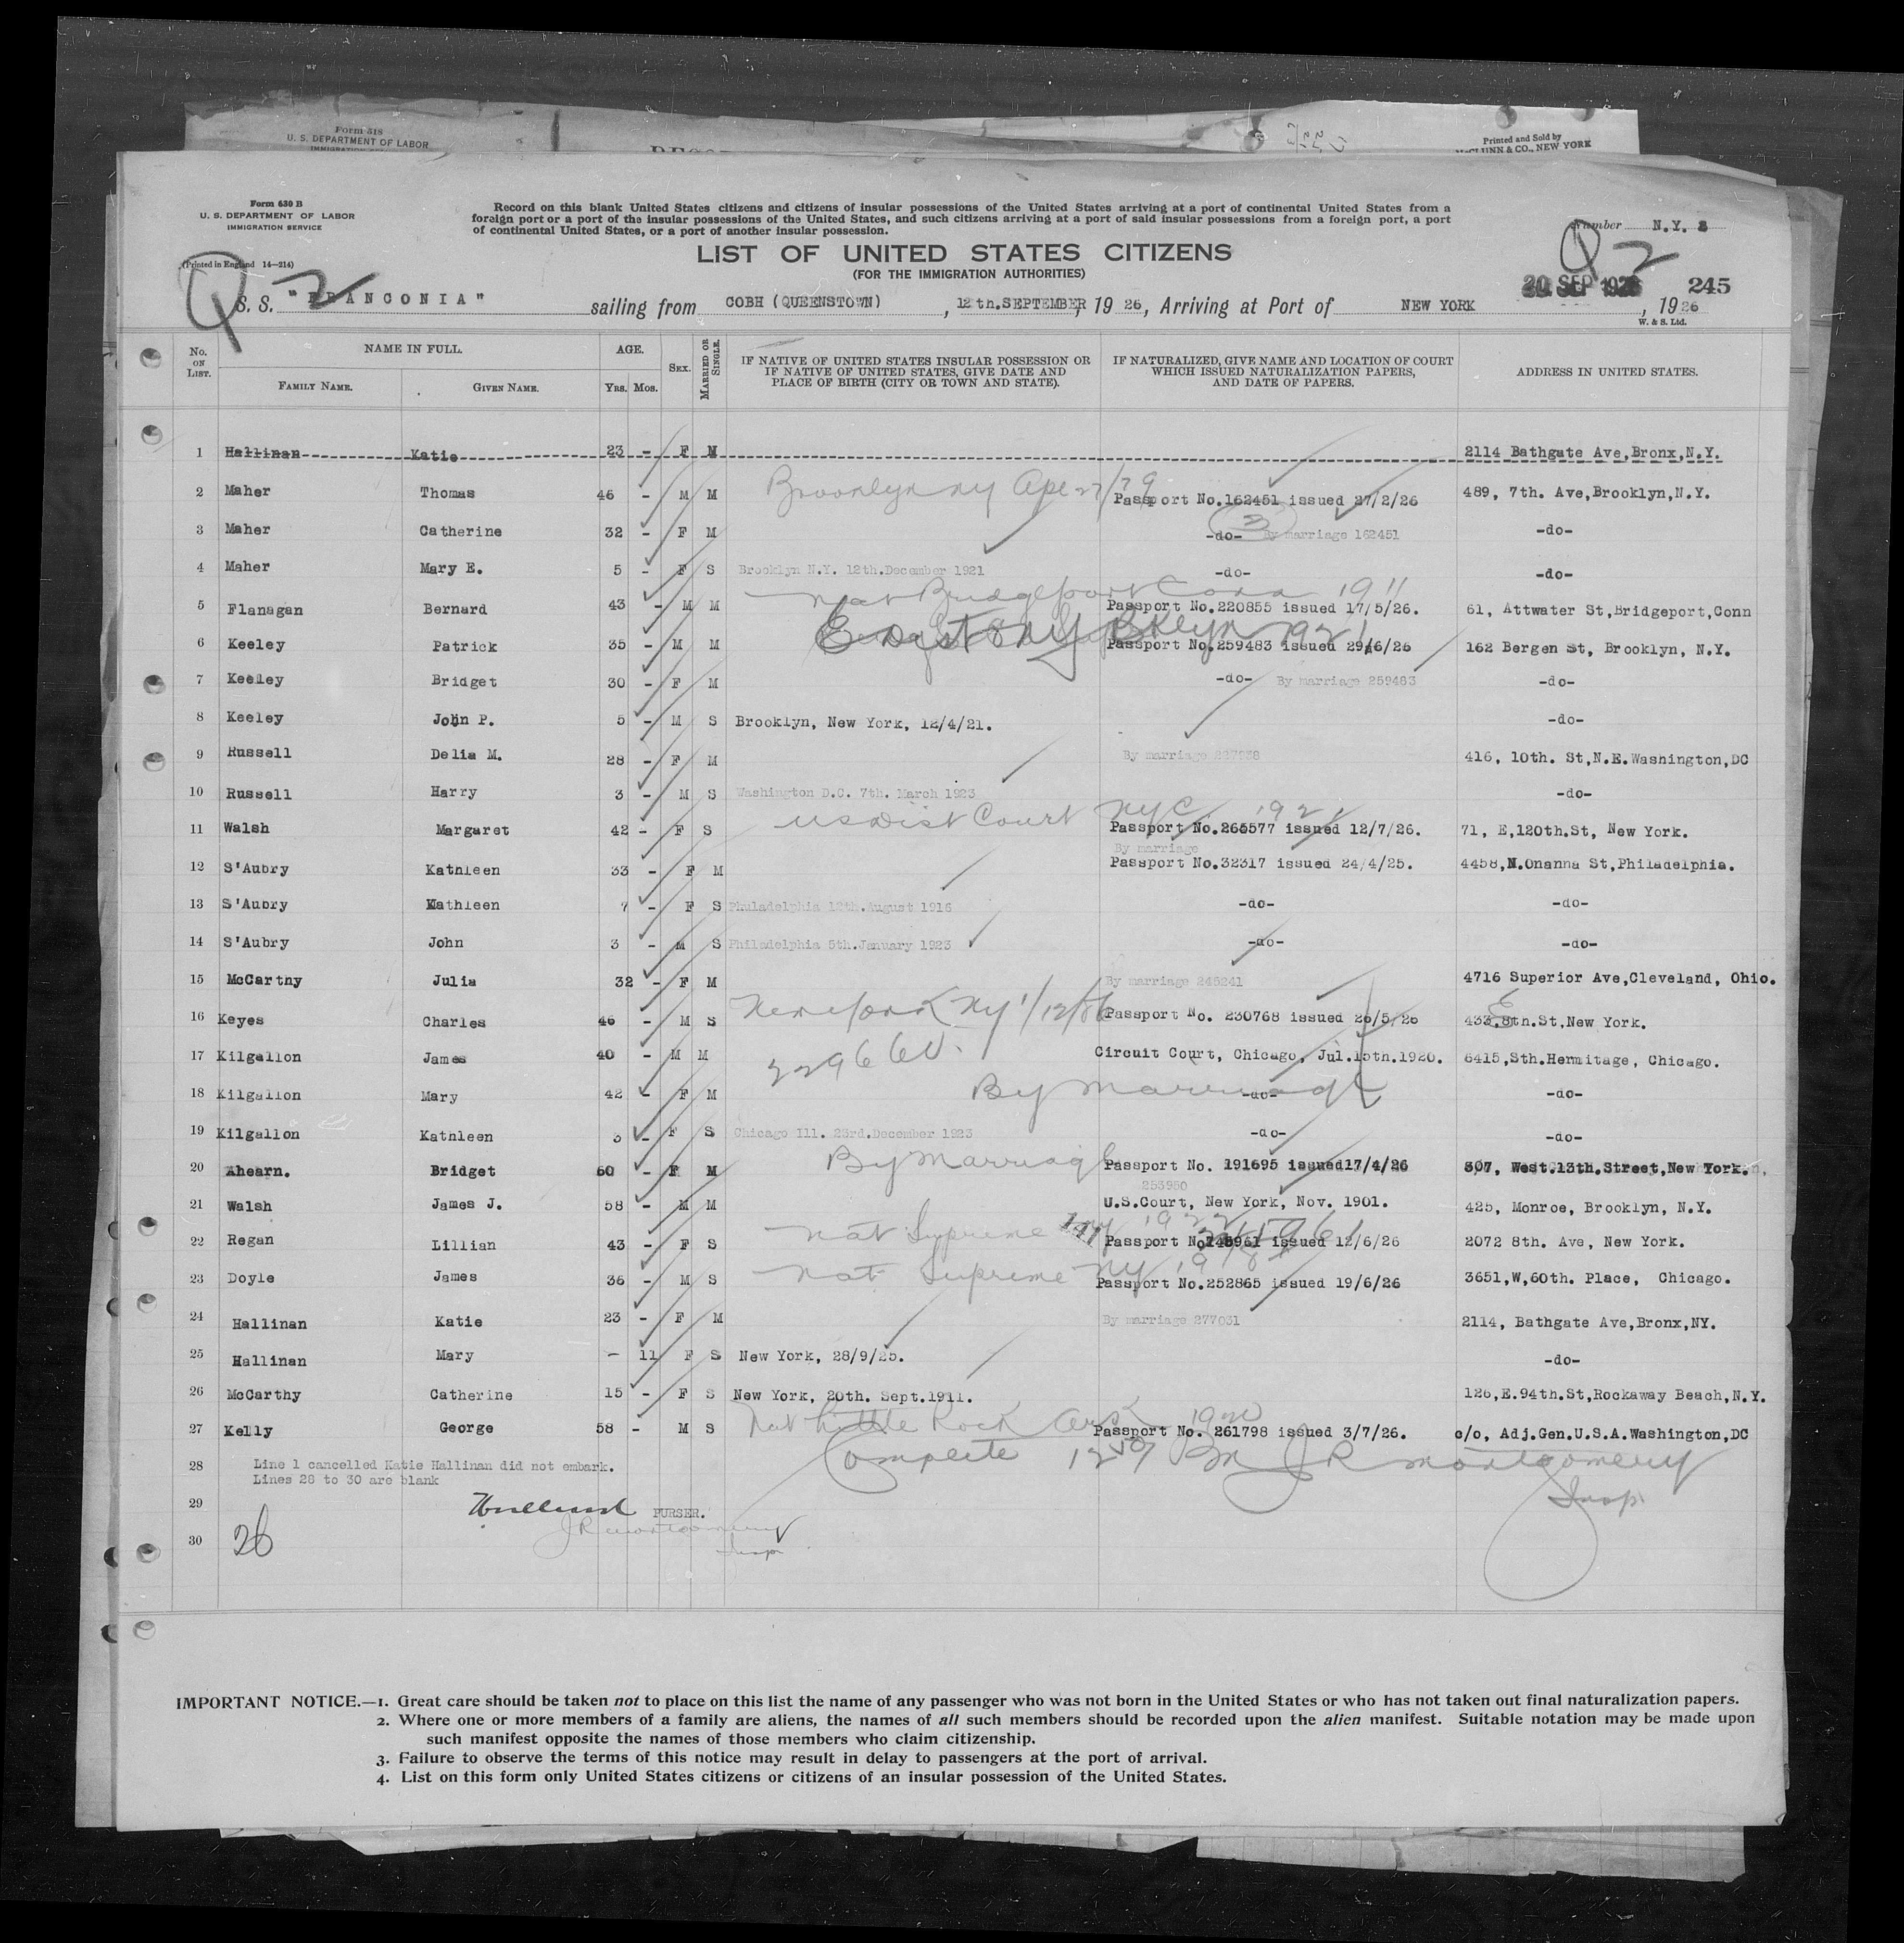 Form 518
U. S. DEPARTMENT OF LABOR
Printed and Sold by
NEW YORK
Form 630 B
U. S. DEPARTMENT OF LABOR
IMMIGRATION SERVICE
(Printed in England 14—214)
Record on this blank United States citizens and citizens of insular possessions of the United States arriving at a port of continental United States from a
foreign port or a port of the insular possessions of the United States, and such citizens arriving at a port of said insular possessions from a foreign port, a port
of continental United States, or a port of another insular possession.
Number N.Y. 2
LIST OF UNITED STATES CITIZENS
(FOR THE IMMIGRATION AUTHORITIES)
Q 2
Q 2
20 SEP 1926 245
S. S. "FRANCONIA" sailing from COBH (QUEENSTOWN), 12th.SEPTEMBER, 19 26, Arriving at Port of NEW YORK, 1926
W. & S. Ltd.
No. ON LIST. NAME IN FULL. FAMILY NAME. GIVEN NAME. AGE. YRS. MOS. SEX. MARRIED OR SINGLE. IF NATIVE OF UNITED STATES INSULAR POSSESSION OR IF NATIVE OF UNITED STATES, GIVE DATE AND PLACE OF BIRTH (CITY OR TOWN AND STATE). IF NATURALIZED, GIVE NAME AND LOCATION OF COURT WHICH ISSUED NATURALIZATION PAPERS, AND DATE OF PAPERS. ADDRESS IN UNITED STATES.
1 Hallinan Katie 23 - F M 2114 Bathgate Ave,Bronx,N.Y.
2 Maher Thomas 46 - M M Brooklyn ny Passport No.162451 issued 27/2/26 489, 7th. Ave,Brooklyn,N.Y.
3 Maher Catherine 32 - F M -do- By marriage 162451 -do-
4 Maher Mary E. 5 - F S Brooklyn N.Y. 12th.December 1921 -do- -do-
5 Flanagan Bernard 43 - M M nat Bridgeport Conn 1911 Passport No.220855 issued 17/5/26. 61, Attwater St,Bridgeport,Conn
6 Keeley Patrick 35 - M M E Dist NY Bklyn 1921 Passport No.259483 issued 29/6/26 162 Bergen St, Brooklyn, N.Y.
7 Keeley Bridget 30 - F M -do- By marriage 259483 -do-
8 Keeley John P. 5 - M S Brooklyn, New York, 12/4/21. -do-
9 Russell Delia M. 28 - F M By marriage 227938 416, 10th. St,N.E.Washington,DC
10 Russell Harry 3 - M S Washington D.C. 7th. March 1923 -do-
11 Walsh Margaret 42 - F S US Dist Court NYC. 1921 Passport No.265577 issued 12/7/26. 71, E,120th.St, New York.
12 S'Aubry Kathleen 33 - F M By marriage Passport No.32317 issued 24/4/25. 4458,N.Onanna St,Philadelphia.
13 S'Aubry Kathleen 7 - F S Philadelphia 12th.August 1916 -do- -do-
14 S'Aubry John 3 - M S Philadelphia 5th.January 1923 -do- -do-
15 McCarthy Julia 32 - F M By marriage 245241 4716 Superior Ave,Cleveland, Ohio.
16 Keyes Charles 46 - M S New York Ny Passport No. 230768 issued 26/5/26 433 E 8th.St,New York.
17 Kilgallon James 40 - M M 229660. Circuit Court, Chicago, Jul.15th.1920. 6415,Sth.Hermitage, Chicago.
18 Kilgallon Mary 42 - F M By marriage -do- -do-
19 Kilgallon Kathleen 3 - F S Chicago Ill. 23rd.December 1923 -do- -do-
20 Ahearn. Bridget 60 - F M By Marriage Passport No. 191695 issued17/4/26 307, West.13th.Street,New York.
21 Walsh James J. 58 - M M 253950 U.S.Court, New York, Nov. 1901. 425, Monroe, Brooklyn, N.Y.
22 Regan Lillian 43 - F S nat Supreme NY 1922 Passport issued 12/6/26 2072 8th. Ave, New York.
23 Doyle James 36 - M S nat Supreme NY 1918 Passport No.252865 issued 19/6/26 3651,W,60th. Place, Chicago.
24 Hallinan Katie 23 - F M By marriage 277031 2114, Bathgate Ave,Bronx,NY.
25 Hallinan Mary - 11 F S New York, 28/9/25. -do-
26 McCarthy Catherine 15 - F S New York, 20th. Sept.1911. 126,E.94th.St,Rockaway Beach,N.Y.
27 Kelly George 58 - M S Nat Little Rock Ark 1920 Passport No. 261798 issued 3/7/26. c/o, Adj.Gen.U.S.A.Washington,DC
28 Line 1 cancelled Katie Hallinan did not embark. Complete J R Montgomery
Lines 28 to 30 are blank
Insp
29 PURSER.
J R Montgomery
Insp
30 26
IMPORTANT NOTICE.—1. Great care should be taken not to place on this list the name of any passenger who was not born in the United States or who has not taken out final naturalization papers.
2. Where one or more members of a family are aliens, the names of all such members should be recorded upon the alien manifest. Suitable notation may be made upon
such manifest opposite the names of those members who claim citizenship.
3. Failure to observe the terms of this notice may result in delay to passengers at the port of arrival.
4. List on this form only United States citizens or citizens of an insular possession of the United States.